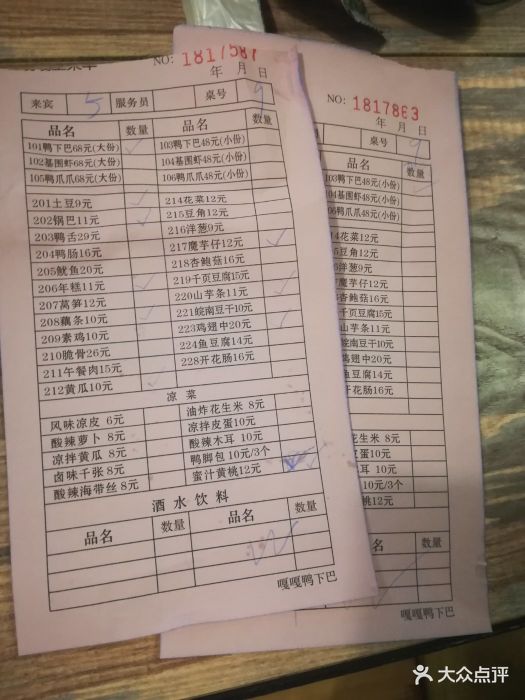 NO: 1817587
年 月 日
来宾 5 服务员 桌号 9
品名 数量 品名 数量
101鸭下巴68元(大份) 103鸭下巴48元(小份)
102基围虾68元(大份) 104基围虾48元(小份)
105鸭爪爪68元(大份) 106鸭爪爪48元(小份)
201土豆9元 214花菜12元
202锅巴11元 215豆角12元
203鸭舌29元 216洋葱9元
204鸭肠16元 217魔芋仔12元
205鱿鱼20元 218杏鲍菇16元
206年糕11元 219千页豆腐15元
207莴笋12元 220山芋条11元
208藕条10元 221皖南豆干10元
209素鸡10元 223鸡翅中20元
210脆骨26元 224鱼豆腐14元
211午餐肉15元 228开花肠16元
212黄瓜10元
凉菜
风味凉皮 6元 油炸花生米 8元
酸辣萝卜 8元 凉拌皮蛋10元
凉拌黄瓜 8元 酸辣木耳 10元
卤味千张 8元 鸭脚包 10元/3个
酸辣海带丝 8元 蜜汁黄桃12元
酒水饮料
品名 数量 品名 数量
嘎嘎鸭下巴
NO: 1817863
年 月 日
桌号 9
品名 数量
103鸭下巴48元(小份)
104基围虾48元(小份)
106鸭爪爪48元(小份)
214花菜12元
215豆角12元
216洋葱9元
217魔芋仔12元
杏鲍菇16元
千页豆腐15元
山芋条11元
皖南豆干10元
鸡翅中20元
鱼豆腐14元
开花肠16元
花生米 8元
皮蛋10元
木耳 10元
10元/3个
黄桃12元
品名 数量
嘎嘎鸭下巴
大众点评